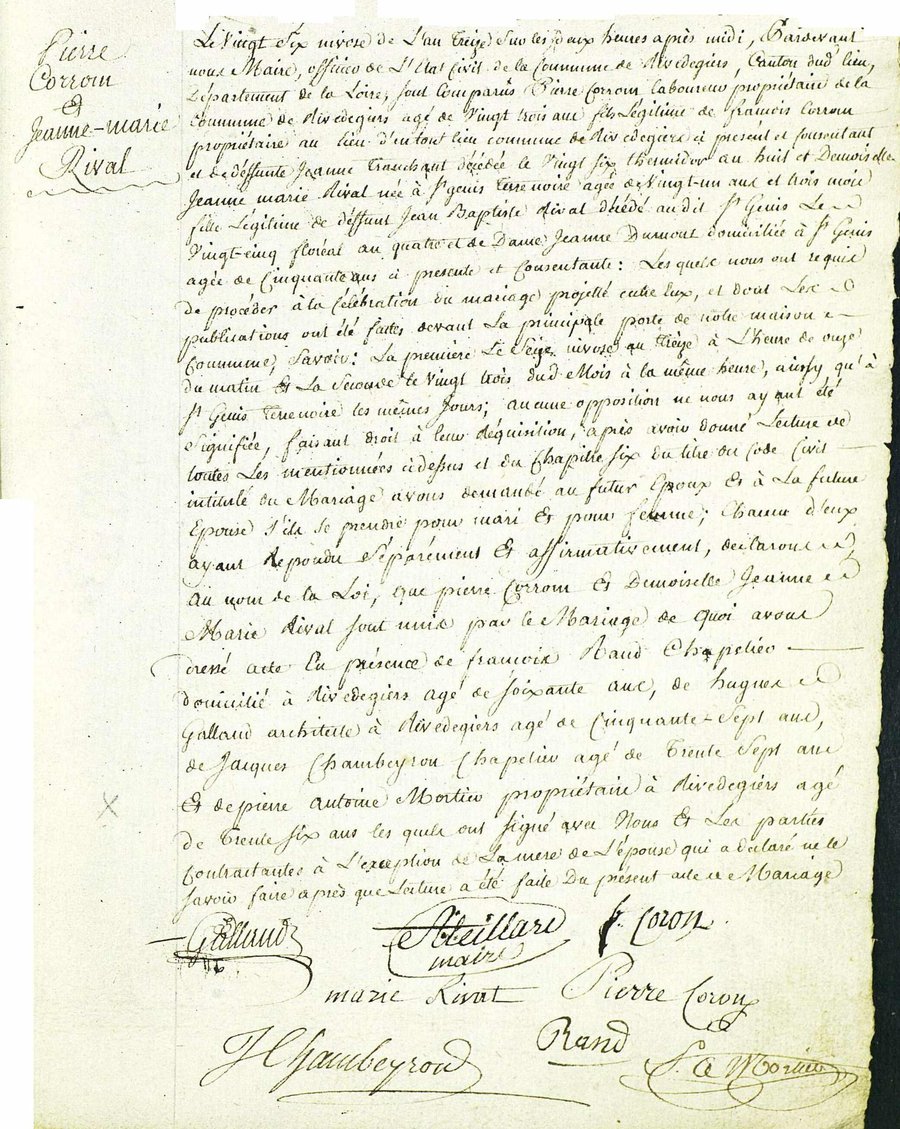 Pierre
Corrom
&
Jeanne-marie
Rival
Le Vingt Six nivose de L'an Treize Sur les deux heures après midi, Pardevant
nous Maire, officier de L'Etat Civil de la Commune de Rivedegiers, Canton dud lieu,
Département de la Loire, sont comparus Pierre Corrom laboureur propriétaire de la
Commune de Rivedegiers agé de Vingt trois ans fils Légitime de françois Corrom
propriétaire au lieu d' commune de Rivedegiers ci présent et consentant
et de deffunte Jeanne Tranchant décédée le Vingt Six thermidor an huit et Demoiselle
Jeanne marie Rival née à St genis terrenoire agée de Vingt-un ans et trois mois
fille Légitime de deffunt Jean Baptiste Rival décédé audit St Genis Le
Vingt-cinq floréal an quatre et de Dame Jeanne Dumont domiciliée à St Genis
agée de Cinquante ans ci presente et Consentante : Les quels nous ont requis
de procéder à la Célébration du mariage projetté entre Eux, et dont Les
publications ont été faites devant La principale porte de notre maison
Commune, Savoir : La première Le Seize nivose an treize à L'heure de onze
du matin & La Seconde le Vingt trois dud Mois à la même heure, ainsy qu'à
St Genis terrenoire les mêmes Jours ; aucune opposition ne nous ayant été
Signifiée, faisant droit à leur Réquisition, après avoir donné Lecture de
toutes Les mentionnées cidessus et du Chapitre Six du titre du Code Civil
intitulé du Mariage avons demandé au futur Epoux & à La future
Epouse S'ils Se prendre pour mari & pour femme ; Chacun d'eux
ayant Repondu Séparément & affirmativement, declarons
au nom de la Loi, que pierre Corrom & Demoiselle Jeanne
Marie Rival sont unis par le Mariage de quoi avons
dressé acte En présence de francois Rand Chapelier
domicilié à Rivedegiers agé de Soixante ans, de hugues
Galland architecte à Rivedegiers agé de Cinquante-Sept ans,
de Jacques Chambeyron Chapelier agé de Trente Sept ans
& de pierre Antoine Mortier propriétaire à Rivedegiers agé
de Trente Six ans les quels ont Signé avec Nous & Les parties
Contractantes à L'exception de La mere de L'épouse qui a déclaré ne le
Savoir faire après que Lecture a été faite Du présent acte de Mariage
Galland
maire
f. Coron
marie Rivat
Pierre Coron
J Chambeyron
Rand
P. A Mortier